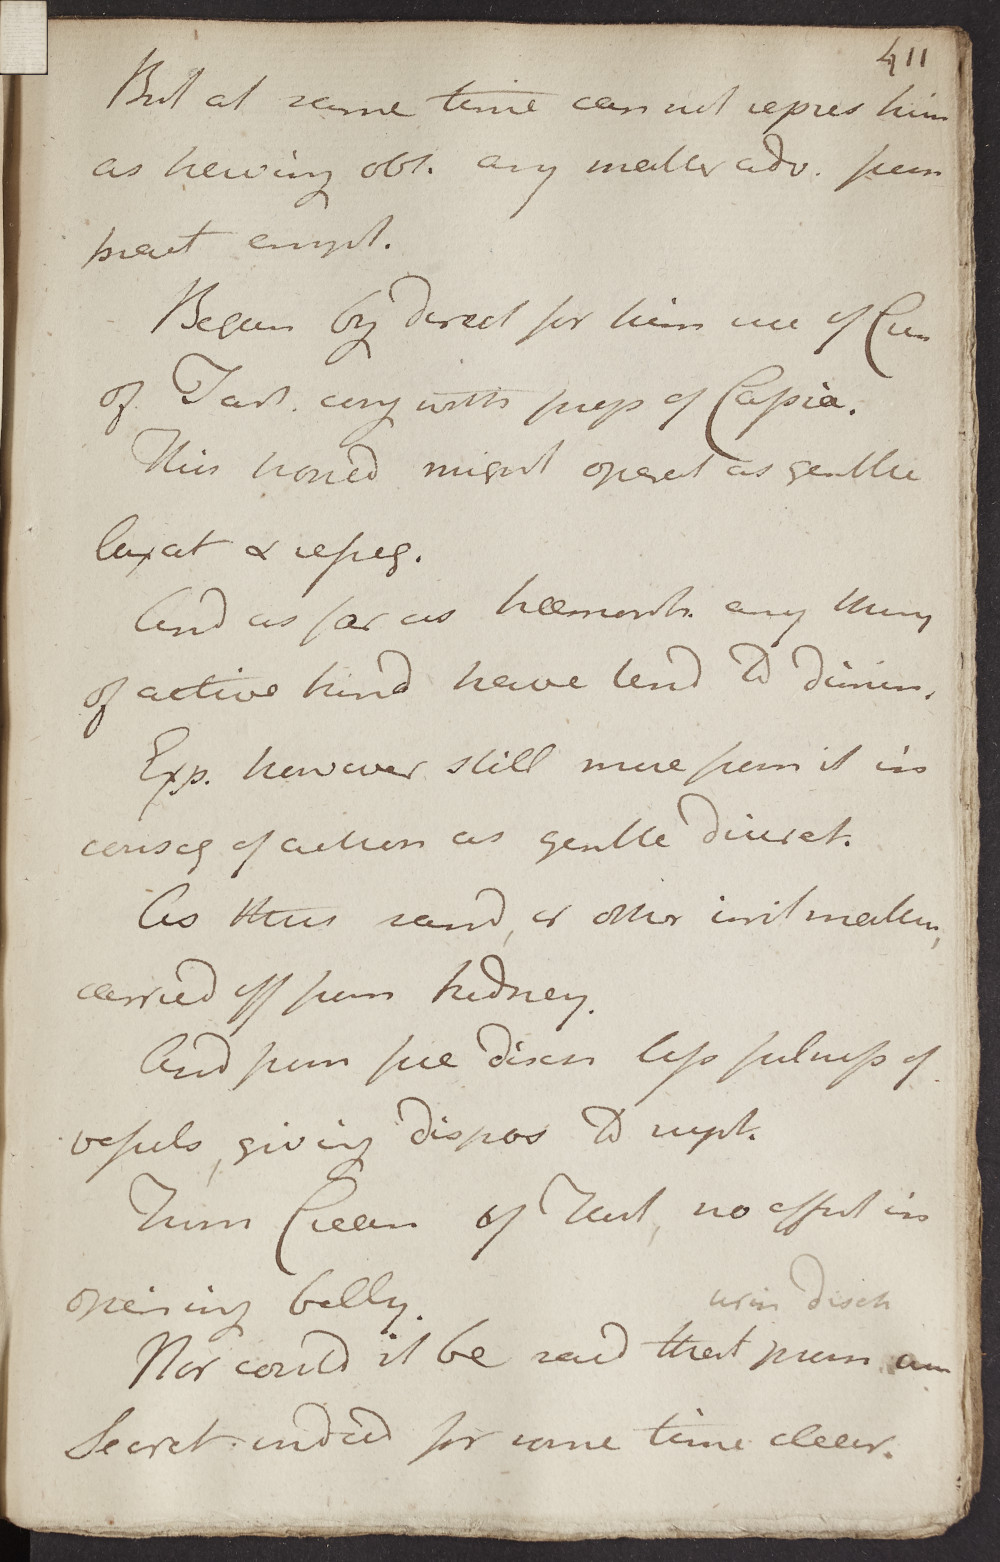 411
But at same time can not repres him
as having obt. any matter adv. from
pract empl.
Began by direct for him use of Crem
of Tart. with prep of Cassia.
This hoped might operat as gentle
laxat & refrig.
And as far as haemorrh. any thing
of active kind have tend to dimin.
Exp. however still more from it in
conseq of action as gentle diuret.
As thus sand, or other irrit matter,
carried off from kidney.
And from free disch less fulness of
vessels, giving dispos to rupt.
From Cream of Tart, no effect in
opening belly.
urin disch
Nor could it be said that from
Secret indeed for some time clear.